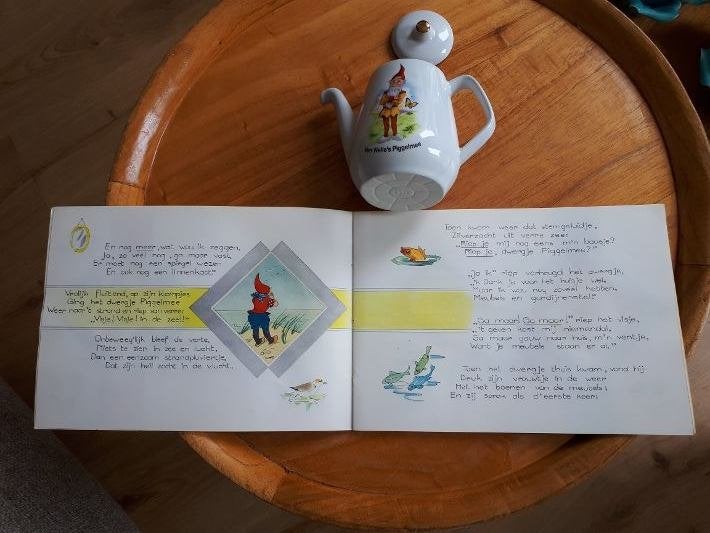 Van Nelle's Piggelmee
En nog meer, wat wou ik zeggen,
Ja, zo veel nog, ga maar vast,
Er moet nog een spiegel wezen
En ook nog een linnenkast."
Vrolijk fluitend, op zijn klompjes
Ging het dwergje Piggelmee
Weer naar 't strand en riep van verre:
"Visje! Visje! in de zee!"
Onbeweeglijk bleef de verte,
Niets te zien in zee en lucht,
Dan een eenzaam strandpluviertje,
Dat zijn heil zocht in de vlucht.
Toen kwam weer dat stemgeluidje,
Zilverzacht uit verre zee:
"Riep je mij nog eens m'n baasje?
Riep je, dwergje Piggelmee?"
"Ja ik" riep verheugd het dwergje,
"Ik dank je voor het huisje wel
Maar ik wou nog zoveel hebben,
Meubels en gordijnenstel!"
"Ga maar! Ga maar!" riep het visje,
"'t geven kost mij niemendal,
Ga maar gauw naar huis, m'n ventje,
Want je meubels staan er al."
Toen het dwergje thuis kwam, vond hij
Druk zijn vrouwtje in de weer
Met het boenen van de meubels;
En zij sprak als d'eerste keer: